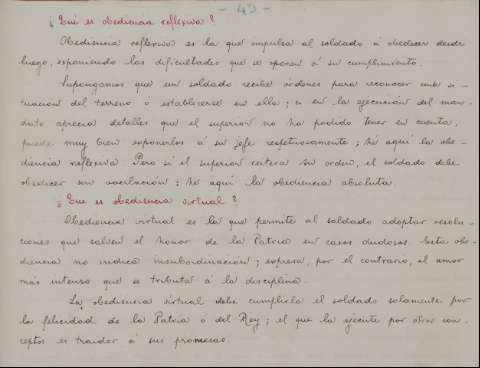 - 43 -
¿Qué es obediencia reflexiva?
Obediencia reflexiva es la que impulsa al soldado á obedecer desde
luego, exponiendo las dificultades que se oponen á su cumplimiento.
Supongamos que un soldado recibe órdenes para reconocer una si-
tuación del terreno o establecerse en ella; si en la ejecución del man-
dato aprecia detalles que el superior no ha podido tener en cuenta,
puede muy bien exponerlos á su jefe respetuosamente; he aquí la obe-
diencia reflexiva. Pero si el superior reitera su orden, el soldado debe
obedecer sin vacilación; he aquí la obediencia absoluta.
¿Que es obediencia virtual?
Obediencia virtual es la que permite al soldado adoptar resolu-
ciones que salven el honor de la Patria en casos dudosos. Esta obe-
diencia no indica insubordinación; expresa, por el contrario, el amor
más intenso que se tributa á la disciplina.
La obediencia virtual debe cumplirla el soldado solamente por
la felicidad de la Patria ó del Rey; el que la ejecute por otros con-
ceptos es traidor á sus promesas.